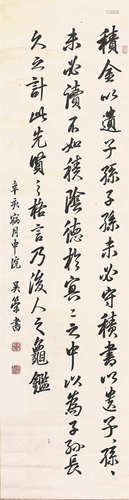 積金以遺子孫子孫未必守積書以遺子孫〻
未必讀不如積陰德於冥〻之中以為子孫長
久之計此先賢之格言乃後人之龜鑑
辛亥菊月中浣 吳榮書